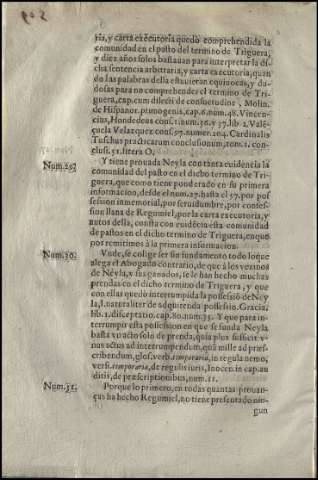 ria, y carta executoria quedò comprehendida la
comunidad en el posto del termino de Triguera,
y diez años solos bastauan para interpretar la di-
cha sentencia arbitraria, y carta executoria, quan
do las palabras della estuuieran equiuocas, y du-
dosas para no comprehender el termino de Tri-
guera, cap. cum dilecti de consuetudine, Molin.
de Hispanor. primogenis, cap. 6. num. 48. Vincen-
cius, Hondedeus cons. 1. num. 36. y 37. lib. 2. Valéç-
uela Velazquez cons. 97. numer. 204. Cardinalis
Tuschus practicarum conclusionum, tom. 1. con-
clus. 51. litera O.
Num. 29. Y tiene prouada Neyla con tanta euidencia la
comunidad del pasto en el dicho termino de Tri-
guera, que como tiene ponderado en su primera
informacion, desde el num. 27. hasta el 57. por pos
session inmemorial, por seruidumbre, por confes-
sion llana de Regumiel, por la carta executoria, y
autos della, consta con euidécia esta comunidad
de pastos en el dicho termino de Triguera, en que
nos remitimos à la primera informacion.
Num. 30. Vnde, se colige ser sin fundamento todo lo que
alega el Abogado contrario, de que à los vezinos
de Neyla, y sus ganados, se le han hecho muchas
prendas en el dicho termino de Triguera, y que
con ellas quedò interrumpida la possessiō de Ney
la, l. naturaliter de adquirenda possessio. Gracia,
lib. 1. disceptatio. cap. 80. num. 75. Y que para in-
terrumpir esta possession en que se funda Neyla
basta vn acto solo de prenda, quia plus sufficit v-
nus actus ad interrumpendum, quā mille ad præs-
cribendum, glos. verb. temporaria, in regula nemo,
versi. temporaria, de regulis iuris, Inocen. in cap. au
ditis, de præscriptionibus, num. 11.
Num. 31. Porque lo primero, en todas quantas prouan-
ças ha hecho Regumiel, no tiene presentado nin-
gun